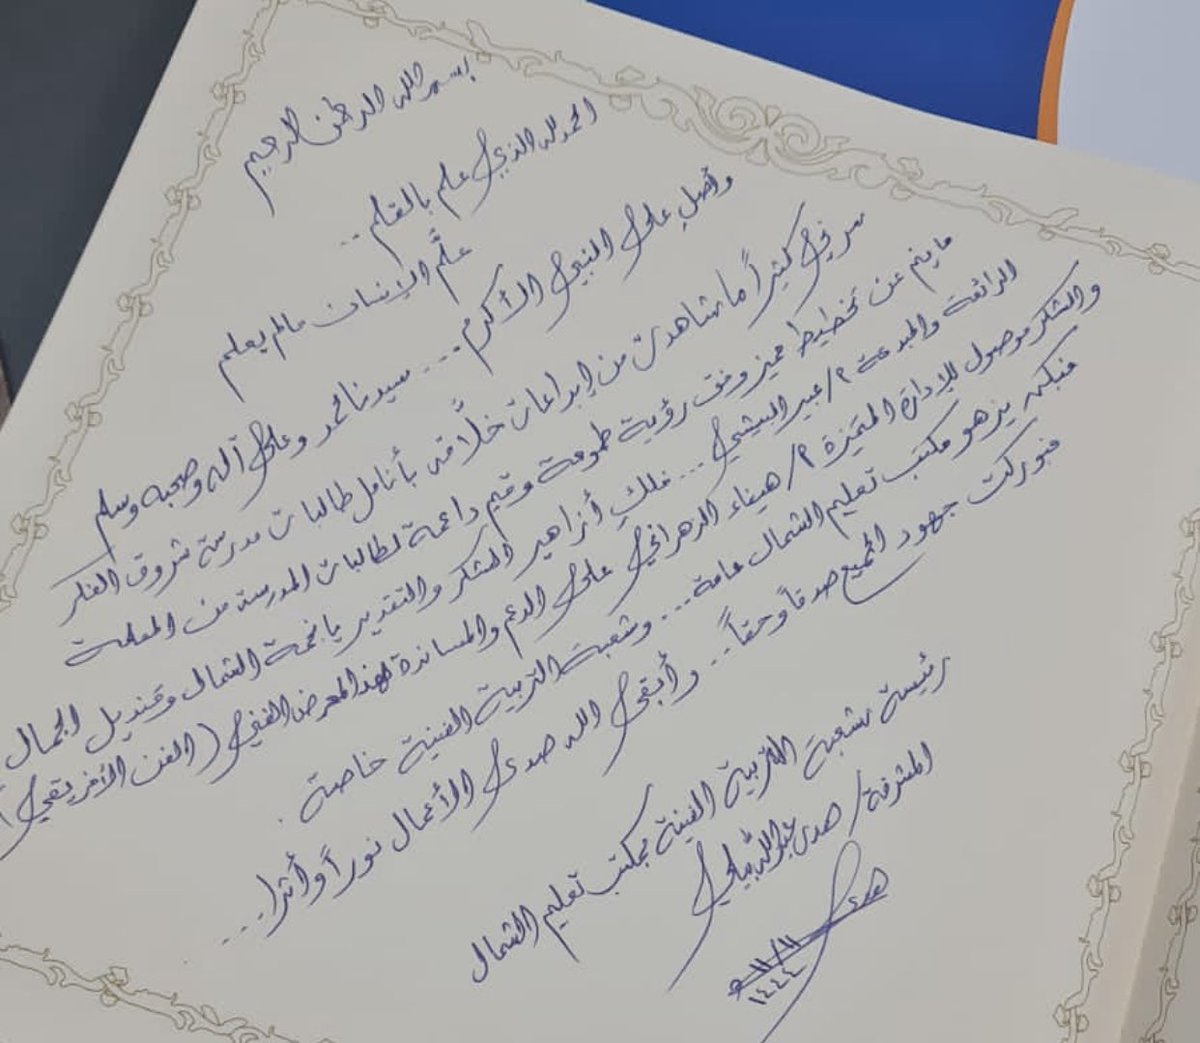 بسم الله الرحمن الرحيم
الحمد لله الذي علم بالقلم ..
علَّم الإنسان مالم يعلم
وأصلِ على النبي الأكرم ... سيدنا محمد وعلى آله وصحبه وسلم
سرني كثيراً ما شاهدت من إبداعات خلَّاقه بأنامل طالبات مدرسة شروق الفكر
ما ينم عن تخطيط مميز وفق رؤية طموحة وقيم داعمة لطالبات المدرسة من المعلمة
الرائعة والمبدعة أ/عبير البيشي ... فلكِ أزاهير الشكر والتقدير يا نجمة الشمال وقنديل الجمال
والشكر موصول للإدارة المتميزة أ/ هيفاء الزهراني على الدعم والمساندة لهذا المعرض الفني ( الفن الأفريقي )
فبكم يزهو مكتب تعليم الشمال عامة ... وشعبة التربية الفنية خاصة .
فبوركت جهود الجميع صدقاً وحقاً .. وأبقى الله صدى الأعمال نوراً وأثرا ...
رئيسة شعبة التربية الفنية بمكتب تعليم الشمال
المشرفة/ صدى عبدالله
صدى
١١/١١
١٤٤٤